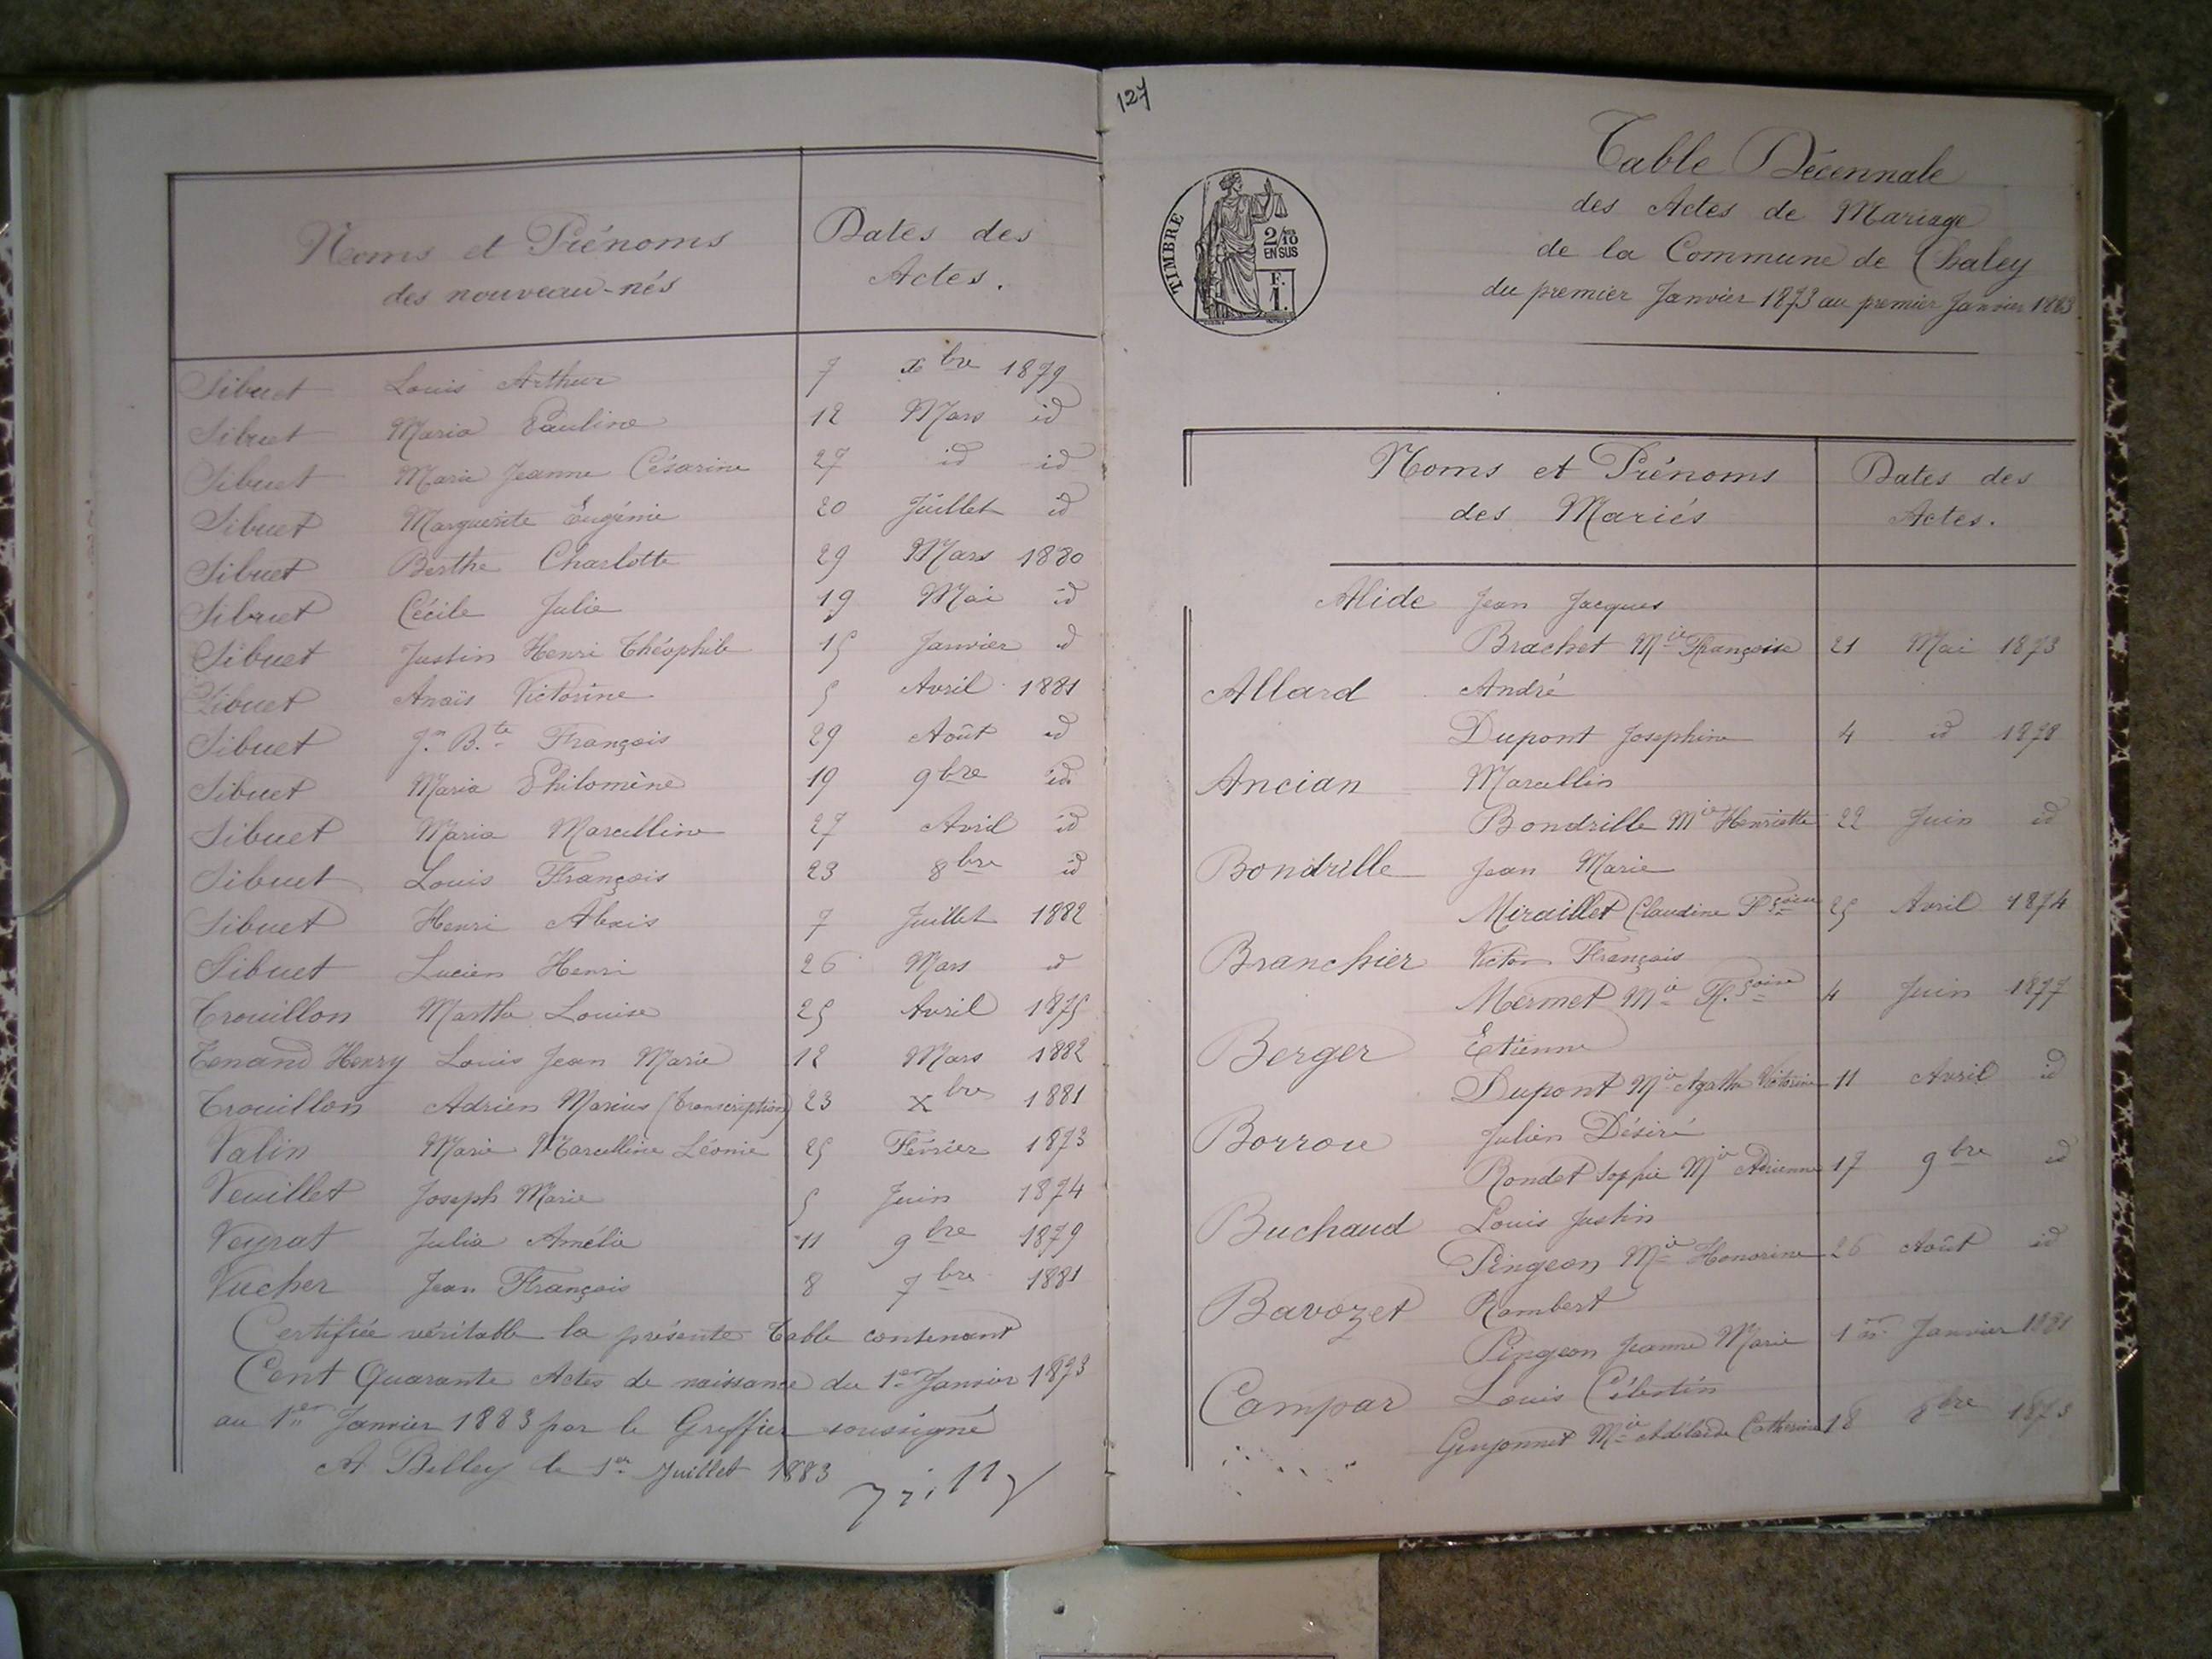 Noms et Prénoms
des nouveau-nés
Dates des
Actes.
Sibuet Louis Arthur 7 xbre 1879
Sibuet Maria Pauline 12 Mars id
Sibuet Marie Jeanne Césarine 27 id id
Sibuet Marguerite Eugénie 20 Juillet id
Sibuet Berthe Charlotte 29 Mars 1880
Sibuet Cécile Julie 19 Mai id
Sibuet Justin Henri Théophile 15 Janvier id
Sibuet Anaïs Victorine 5 Avril 1881
Sibuet Jn. B.te François 29 Août id
Sibuet Maria Philomène 19 9bre id
Sibuet Maria Marcelline 27 Avril id
Sibuet Louis François 23 8bre id
Sibuet Henri Alexis 7 Juillet 1882
Sibuet Lucien Henri 26 Mars id
Trouillon Martha Louise 25 Avril 1875
Tenand Henry Louis Jean Marie 12 Mars 1882
Trouillon Adrien Marius (Transcription) 23 xbre 1881
Valin Marie Marcelline Léonie 25 Février 1873
Veuillet Joseph Marie 5 Juin 1874
Veyrat Julia Amélie 11 9bre 1879
Vucher Jean François 8 7bre 1881
Certifiée véritable la présente Table contenant
Cent Quarante Actes de naissance du 1er Janvier 1873
au 1er Janvier 1883 par le Greffier soussigné
A Belley le 1er Juillet 1883
127
TIMBRE
2/10
EN SUS
F.
1.
Table Décennale
des Actes de Mariage
de la Commune de Chaley
du premier Janvier 1873 au premier Janvier 1883
Noms et Prénoms
des Mariés
Dates des
Actes.
Alide Jean Jacques
Brachet Mie Françoise 21 Mai 1873
Allard André
Dupont Josephine 4 id 1878
Ancian Marcellin
Bondrille Mie Henriette 22 Juin id
Bondrille Jean Marie
Miraillet Claudine Fçoise 25 Avril 1874
Branchier Victor François
Mermet Mie Fçoise 4 Juin 1877
Berger Etienne
Dupont Mie Agathe Victorine 11 Avril id
Borrou Julien Désiré
Rondet Sophie Mie Adrienne 17 9bre id
Buchaud Louis Justin
Pingeon Mie Honorine 26 Août id
Bavozet Rambert
Pingeon Jeanne Marie 1er Janvier 1881
Campar Louis Célestin
Guyonnet Mie Adélaïde Catherine 18 8bre 1873